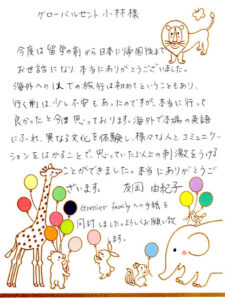 グローバルセット 小林様
今度は留学の前から日本に帰国後まで
お世話になり本当にありがとうございました。
海外への1人での旅行は初めてということもあり、
行く前は少し不安もあったのですが、本当に行って
良かったと今は思っております。海外で本場の英語
にふれ、異なる文化を体験し、様々な人とコミュニケー
ションをはかることで、思っていた以上の刺激をうける
ことができました。本当にありがとうご
ざいます。 友田 由紀子
family への手紙を
同封しました。よろしくお願い致
します。